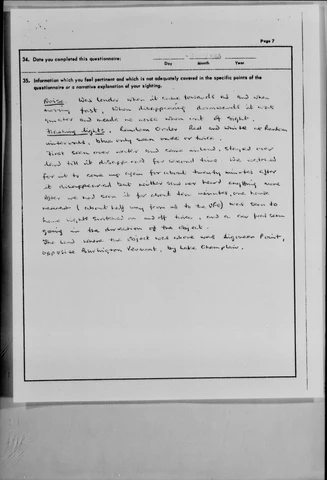 Page 7
34. Date you completed this questionnaire:
Day Month Year
35. Information which you feel pertinent and which is not adequately covered in the specific points of the
questionnaire or a narrative explanation of your sighting.
Noise. Was louder when it came towards us and when
moving fast, When disappearing downwards it was
quieter and made no noise when out of sight.
Flashing lights, Random Order Red and White at Random
intervals, blue only seen once or twice.
First seen over water and came inland, stayed over
land till it disappeared for second time. We waited
for it to come up again for about twenty minutes after
it disappeared but neither saw nor heard anything more
After we had seen it for about ten minutes, one house
nearest (about half way from us to the UFO) was seen to
have lights switched on and off twice, and a car was seen
going in the direction of the object.
The land where the object was above was Point,
opposite Burlington Vermont, by Lake Champlain.